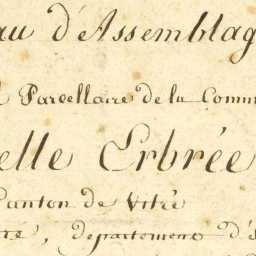 au d'Assemblag
Parcellaire de la Comm
elle Erbrée
Canton de Vitré
département d'